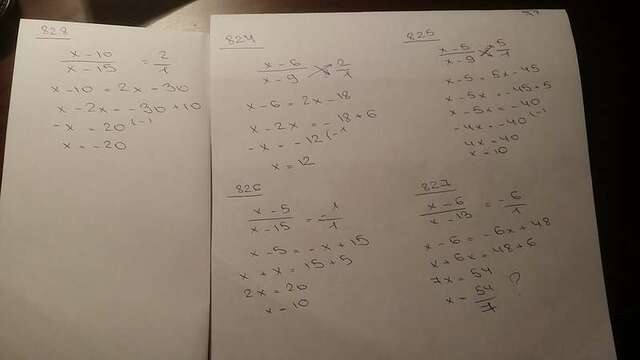 828
x-10/x-15 = 2/1
x-10 = 2x-30
x-2x = -30+10
-x = 20 (-1
x = -20
824
x-6/x-9 2/1
x-6 = 2x-18
x-2x = -18+6
-x = -12 (-1
x = 12
825
x-5/x-9 5/1
x-5 = 5x-45
x-5x = -45+5
x-5x = -40
-4x = -40 (-1
4x = 40
x = 10
826
x-5/x-15 = -1/1
x-5 = -x+15
x+x = 15+5
2x = 20
x = 10
827
= -6/1
x-6 = -6x+48
x+6x = 48+6
7x = 54
x = 54/7 ?